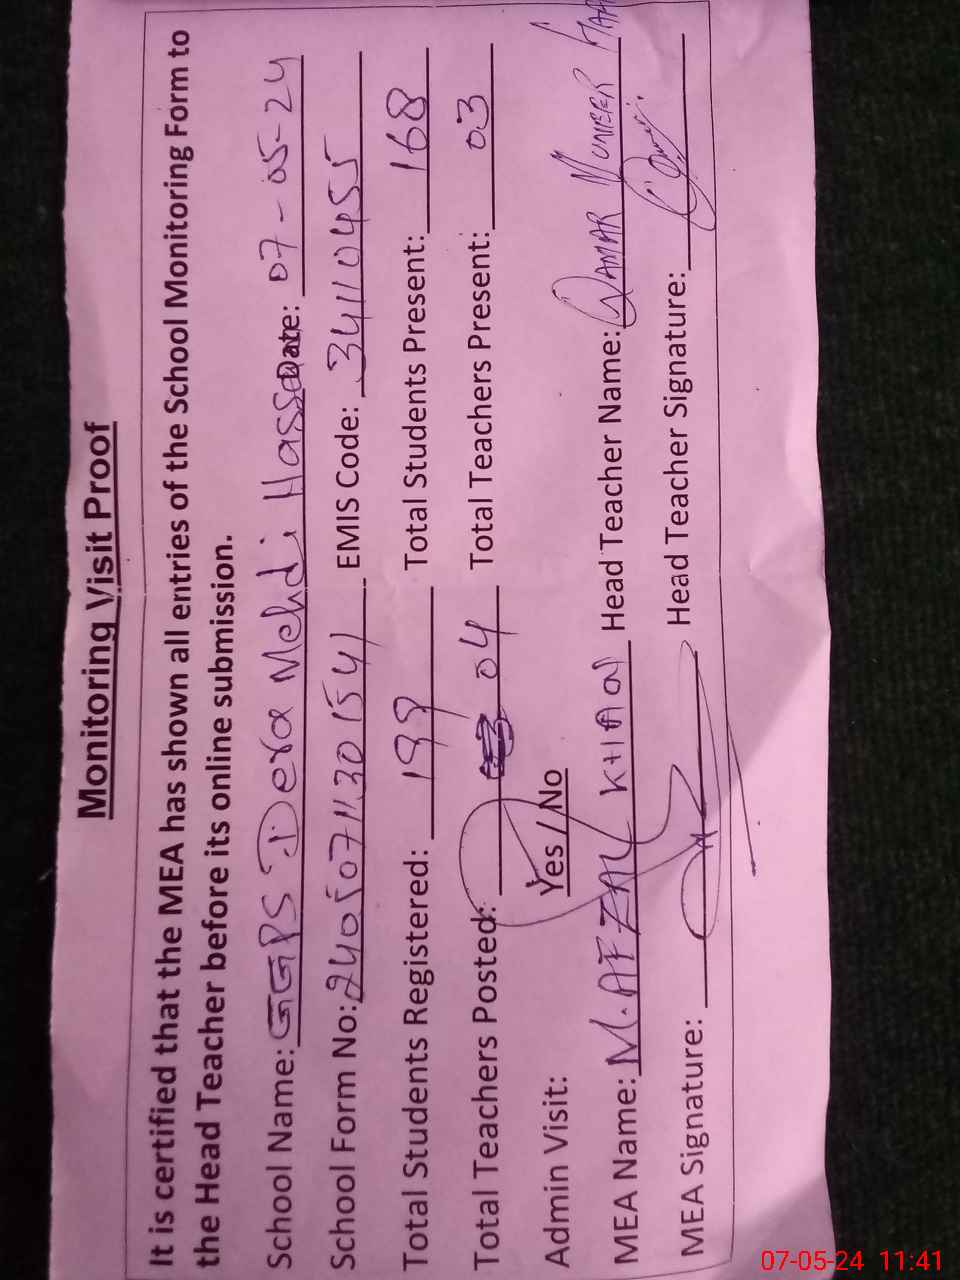 Monitoring Visit Proof
It is certified that the MEA has shown all entries of the School Monitoring Form to
the Head Teacher before its online submission.
School Name: GGPS Dera Mehdi Hassan Date: 07-05-24
School Form No: EMIS Code: 34110455
Total Students Registered: 199 Total Students Present: 168
Total Teachers Posted: 04 Total Teachers Present: 03
Admin Visit: Yes / No
MEA Name: M. AFZAL KHAN Head Teacher Name: QAMAR MUNEER
MEA Signature: Head Teacher Signature:
07-05-24 11:41